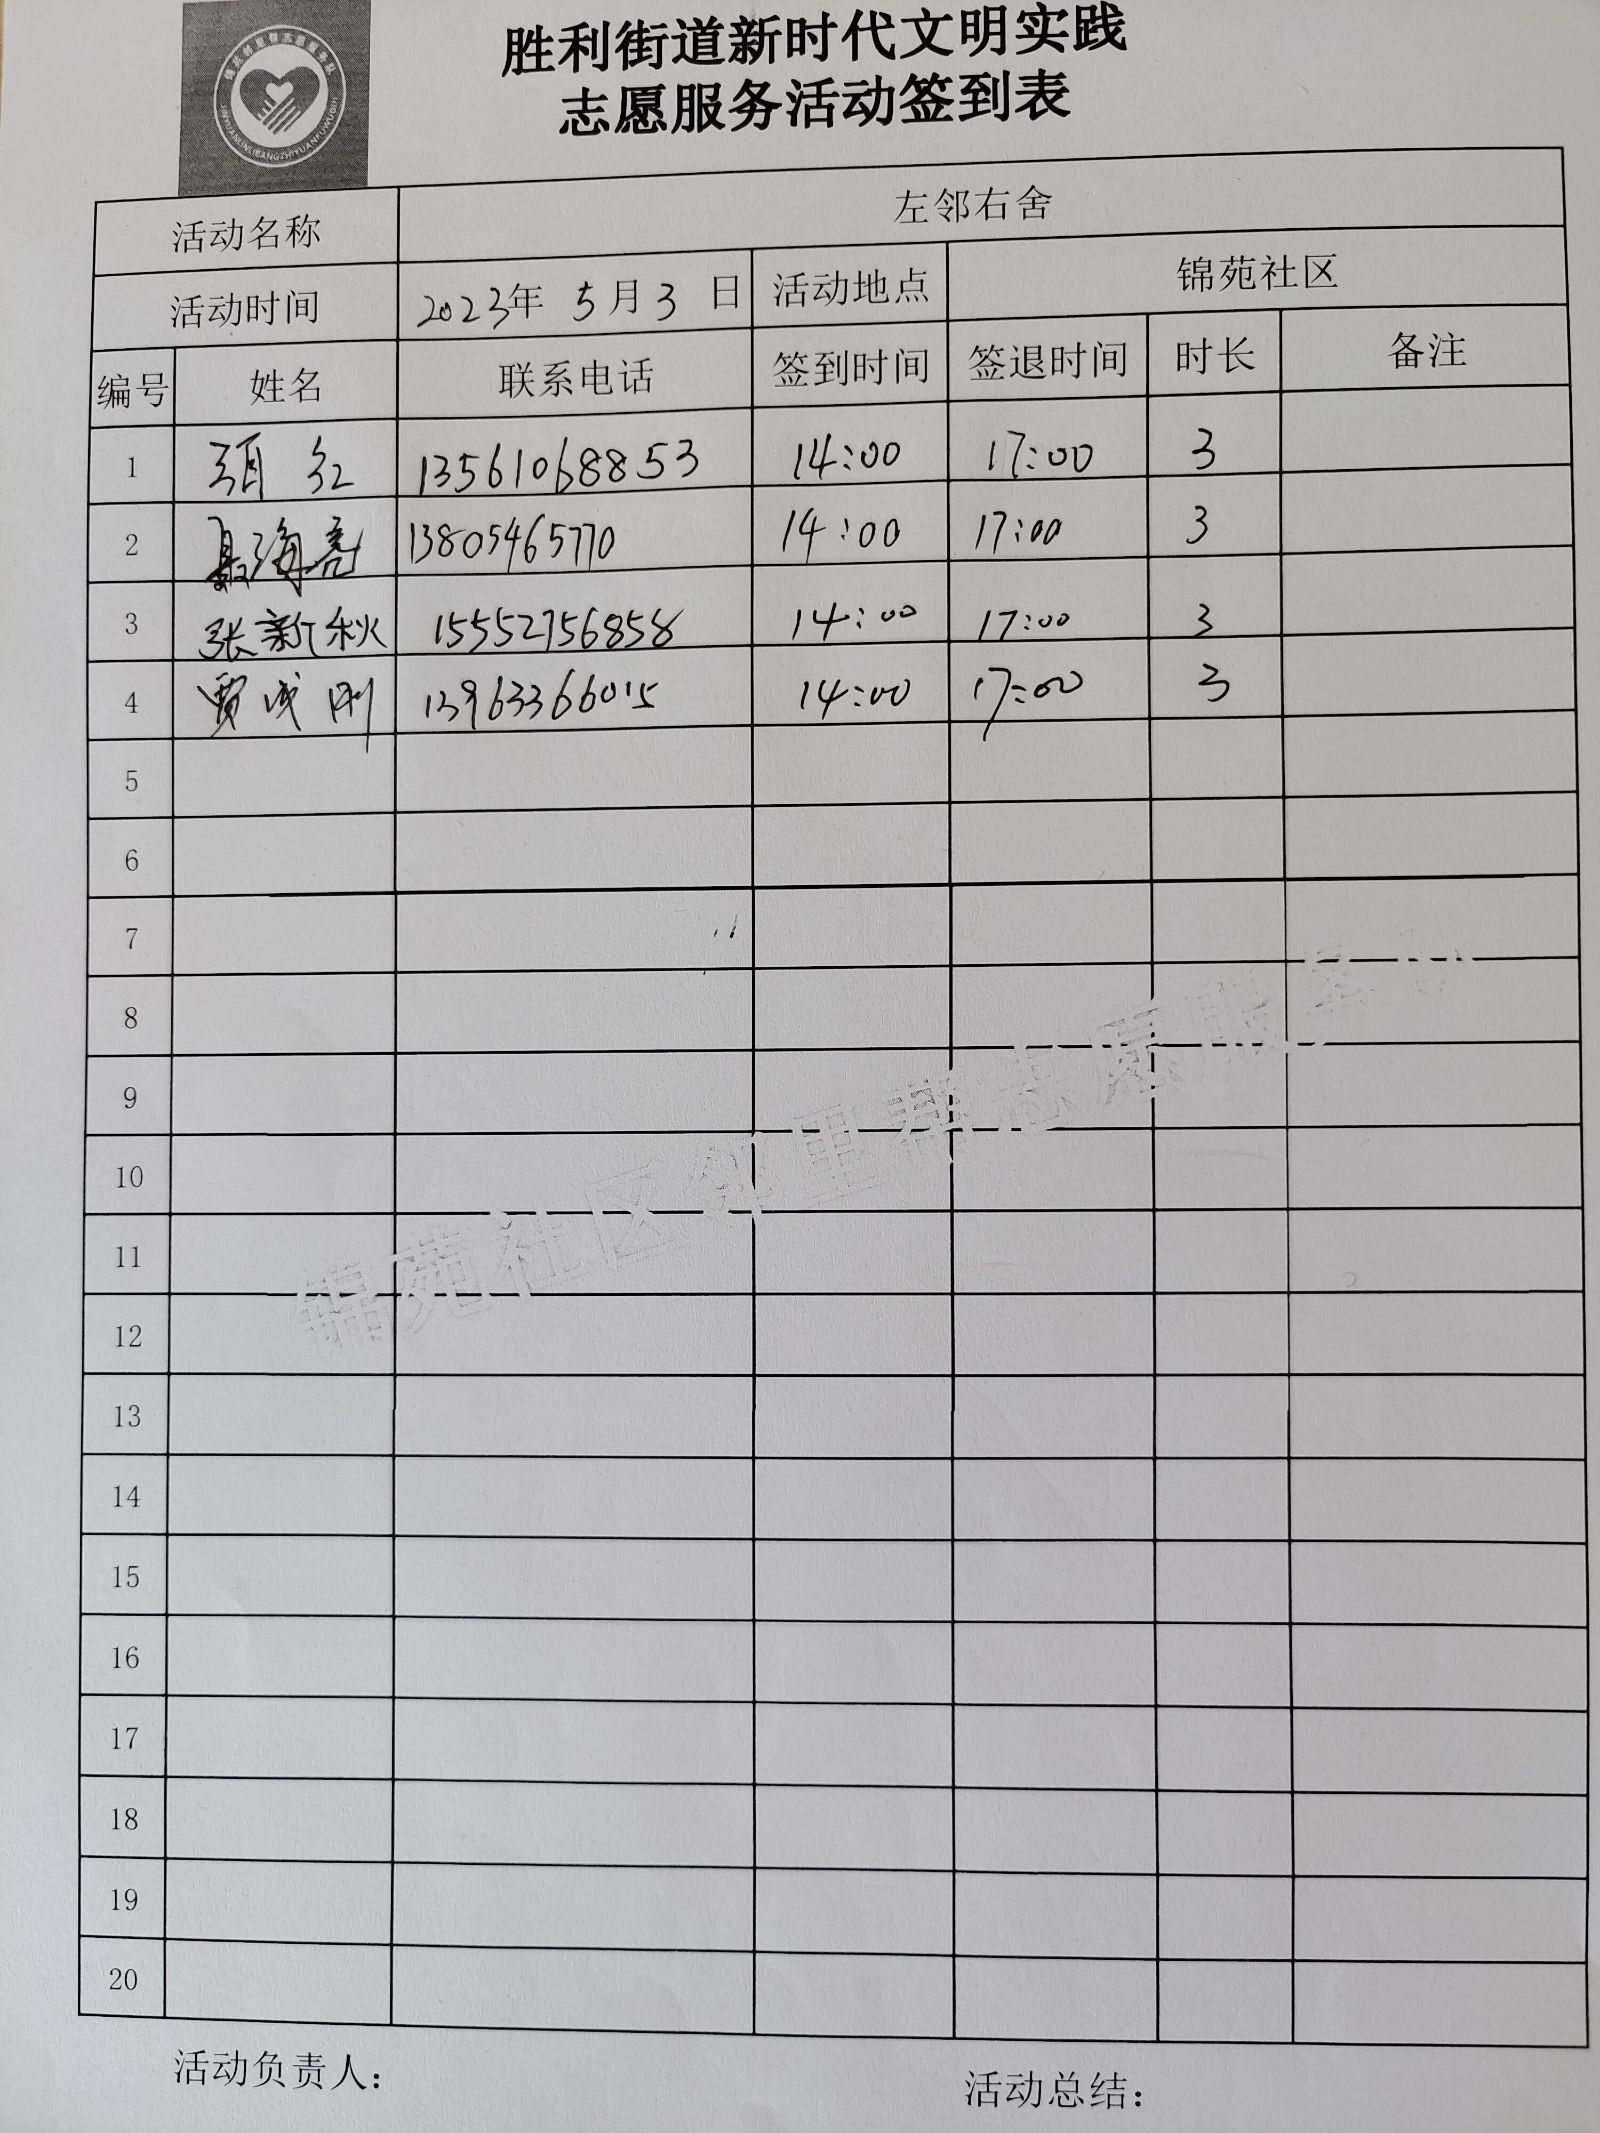 胜利街道新时代文明实践
志愿服务活动签到表
JINYUANLINLIBANGZHIYUANFUWUDUI
活动名称 左邻右舍
活动时间 2023年 5月3 日 活动地点 锦苑社区
编号 姓名 联系电话 签到时间 签退时间 时长 备注
1 项红 13561068853 14:00 17:00 3
2 聂海亮 13805465770 14:00 17:00 3
3 张新秋 15552756858 14:00 17:00 3
4 贾成刚 13963366015 14:00 17:00 3
5
6
7
8
9
10
11
12
13
14
15
16
17
18
19
20
锦苑社区邻里帮志愿服务队
活动负责人：
活动总结：